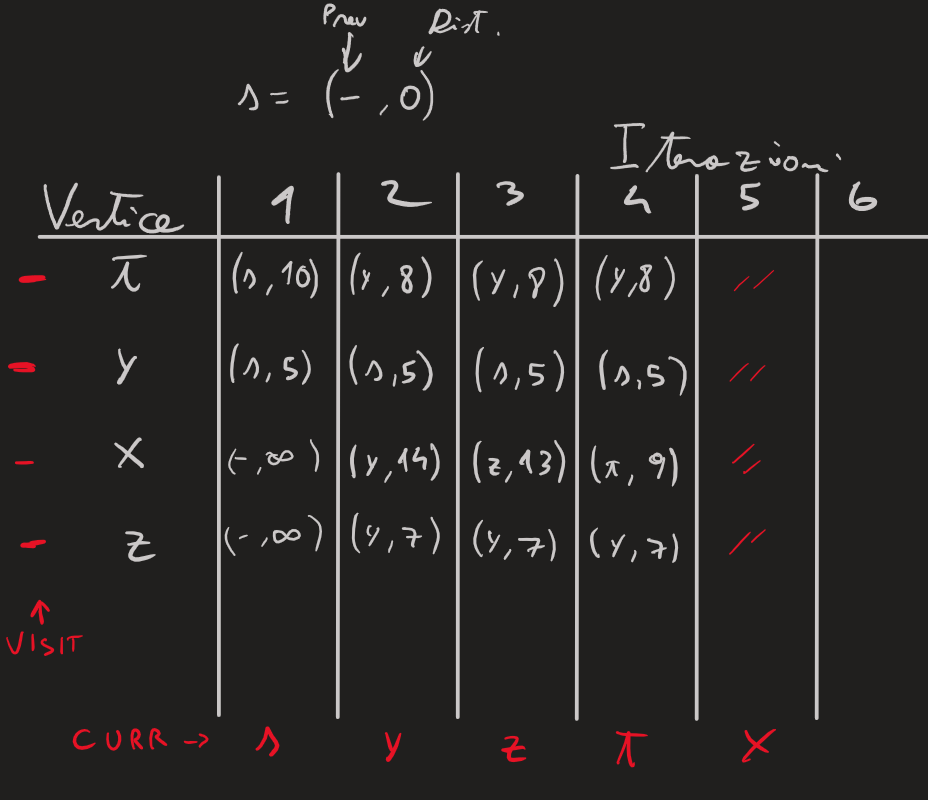 Prev Dist.
s = (-, 0)
Iterazioni
Vertice 1 2 3 4 5 6
t (s, 10) (y, 8) (y, 8) (y, 8) //
y (s, 5) (s, 5) (s, 5) (s, 5) //
x (-, ∞) (y, 14) (z, 13) (t, 9) //
z (-, ∞) (y, 7) (y, 7) (y, 7) //
VISIT
CURR → s y z t x